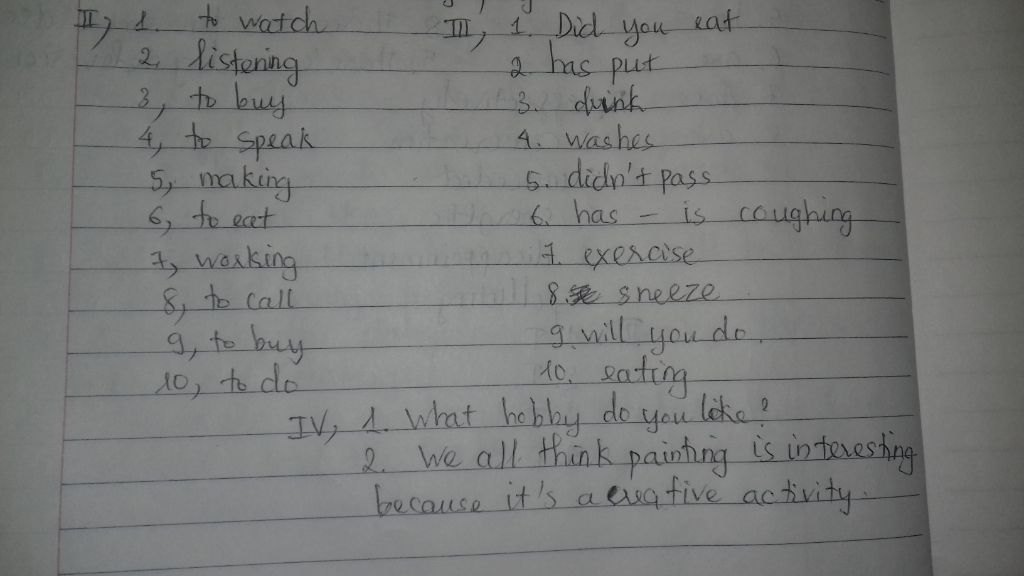 II, 1. to watch
2, listening
3, to buy
4, to speak
5, making
6, to eat
7, working
8, to call
9, to buy
10, to do
III, 1. Did you eat
2. has put
3. drink
4. washes
5. didn't pass
6. has - is coughing
7. exercise
8. sneeze
9. will you do.
10. eating
IV, 1. What hobby do you like?
2. We all think painting is interesting
because it's a creative activity.